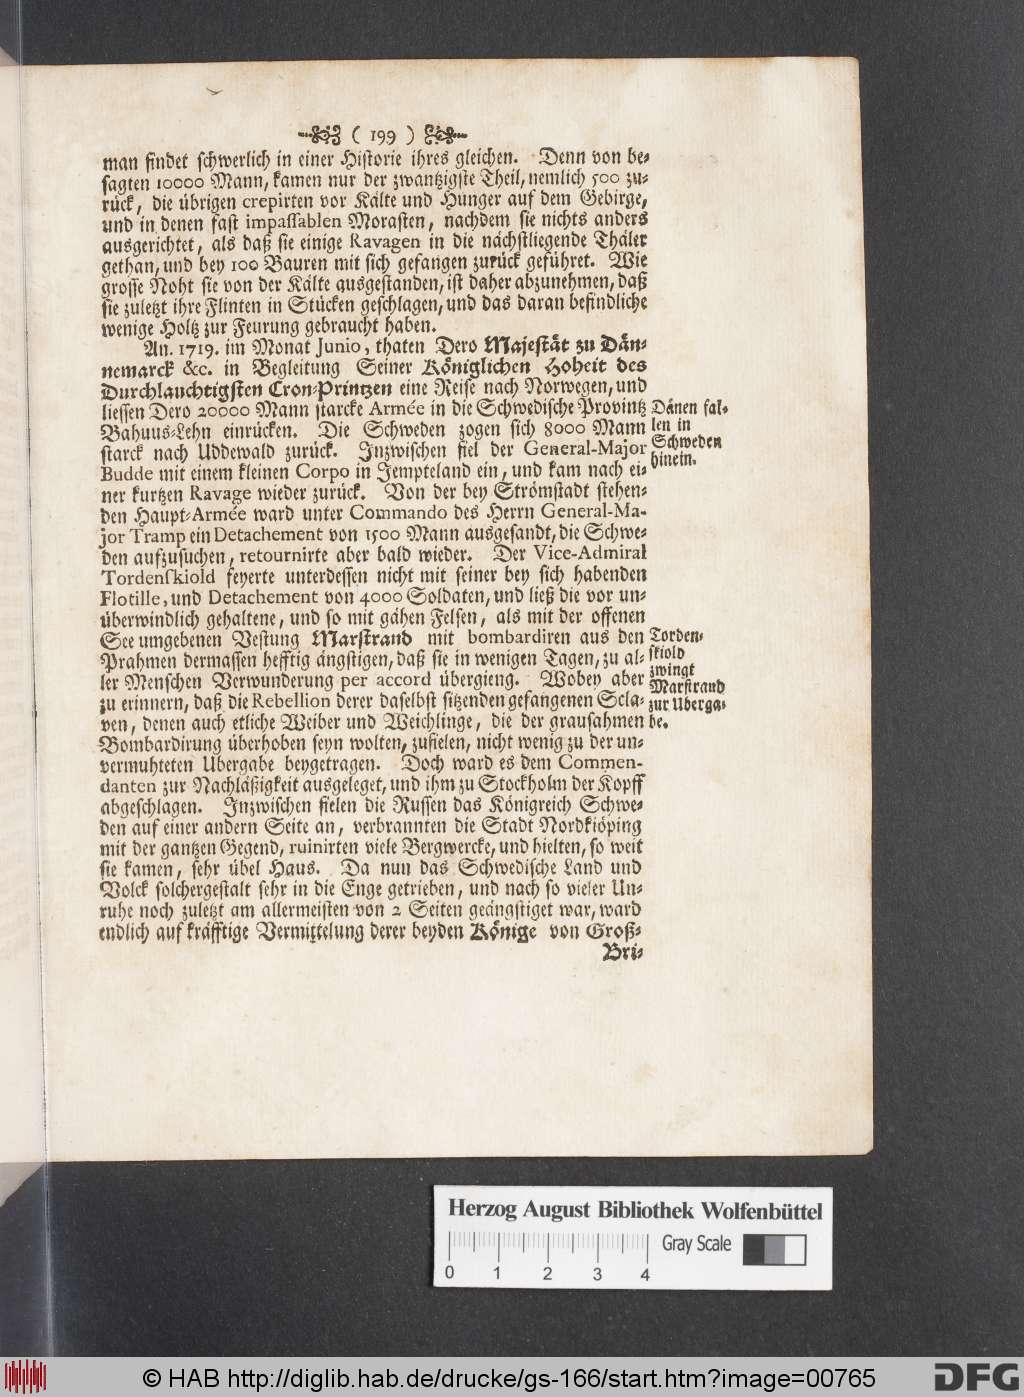 ( 199 )
man findet schwerlich in einer Historie ihres gleichen. Denn von be-
sagten 10000 Mann, kamen nur der zwantzigste Theil, nemlich 500 zu-
rück, die übrigen crepirten vor Kälte und Hunger auf dem Gebirge,
und in denen fast impassablen Morasten, nachdem sie nichts anders
ausgerichtet, als daß sie einige Ravagen in die nächstliegende Thäler
gethan, und bey 100 Bauren mit sich gefangen zurück geführet. Wie
grosse Noht sie von der Kälte ausgestanden, ist daher abzunehmen, daß
sie zuletzt ihre Flinten in Stücken geschlagen, und das daran befindliche
wenige Holtz zur Feurung gebraucht haben.
An. 1719. im Monat Junio, thaten Dero Majestät zu Dän-
nemarck &c. in Begleitung Seiner Königlichen Hoheit des
Durchlauchtigsten Cron-Printzen eine Reise nach Norwegen, und
liessen Dero 20000 Mann starcke Armée in die Schwedische Provintz
Bahuus-Lehn einrücken. Die Schweden zogen sich 8000 Mann
starck nach Uddewald zurück. Inzwischen fiel der General-Major
Budde mit einem kleinen Corpo in Jempteland ein, und kam nach ei-
ner kurtzen Ravage wieder zurück. Von der bey Strömstadt stehen-
den Haupt-Armée ward unter Commando des Herrn General-Ma-
jor Tramp ein Detachement von 1500 Mann ausgesandt, die Schwe-
den aufzusuchen, retournirte aber bald wieder. Der Vice-Admiral
Tordenskiold feyerte unterdessen nicht mit seiner bey sich habenden
Flotille, und Detachement von 4000 Soldaten, und ließ die vor un-
überwindlich gehaltene, und so mit gähen Felsen, als mit der offenen
See umgebenen Vestung Marstrand mit bombardiren aus den
Prahmen dermassen hefftig ängstigen, daß sie in wenigen Tagen, zu al-
ler Menschen Verwunderung per accord übergieng. Wobey aber
zu erinnern, daß die Rebellion derer daselbst sitzenden gefangenen Scla-
ven, denen auch etliche Weiber und Weichlinge, die der grausahmen
Bombardirung überhoben seyn wolten, zufielen, nicht wenig zu der un-
vermuhteten Ubergabe beygetragen. Doch ward es dem Commen-
danten zur Nachläßigkeit ausgeleget, und ihm zu Stockholm der Kopff
abgeschlagen. Inzwischen fielen die Russen das Königreich Schwe-
den auf einer andern Seite an, verbrannten die Stadt Nordkiöping
mit der gantzen Gegend, ruinirten viele Bergwercke, und hielten, so weit
sie kamen, sehr übel Haus. Da nun das Schwedische Land und
Volck solchergestalt sehr in die Enge getrieben, und nach so vieler Un-
ruhe noch zuletzt am allermeisten von 2 Seiten geängstiget war, ward
endlich auf kräfftige Vermittelung derer beyden Könige von Groß-
Bri-
Dänen fal-
len in
Schweden
hinein.
Torden-
skiold
zwingt
Marstrand
zur Uberga-
be.
Herzog August Bibliothek Wolfenbüttel
Gray Scale
0 1 2 3 4
© HAB http://diglib.hab.de/drucke/gs-166/start.htm?image=00765
DFG